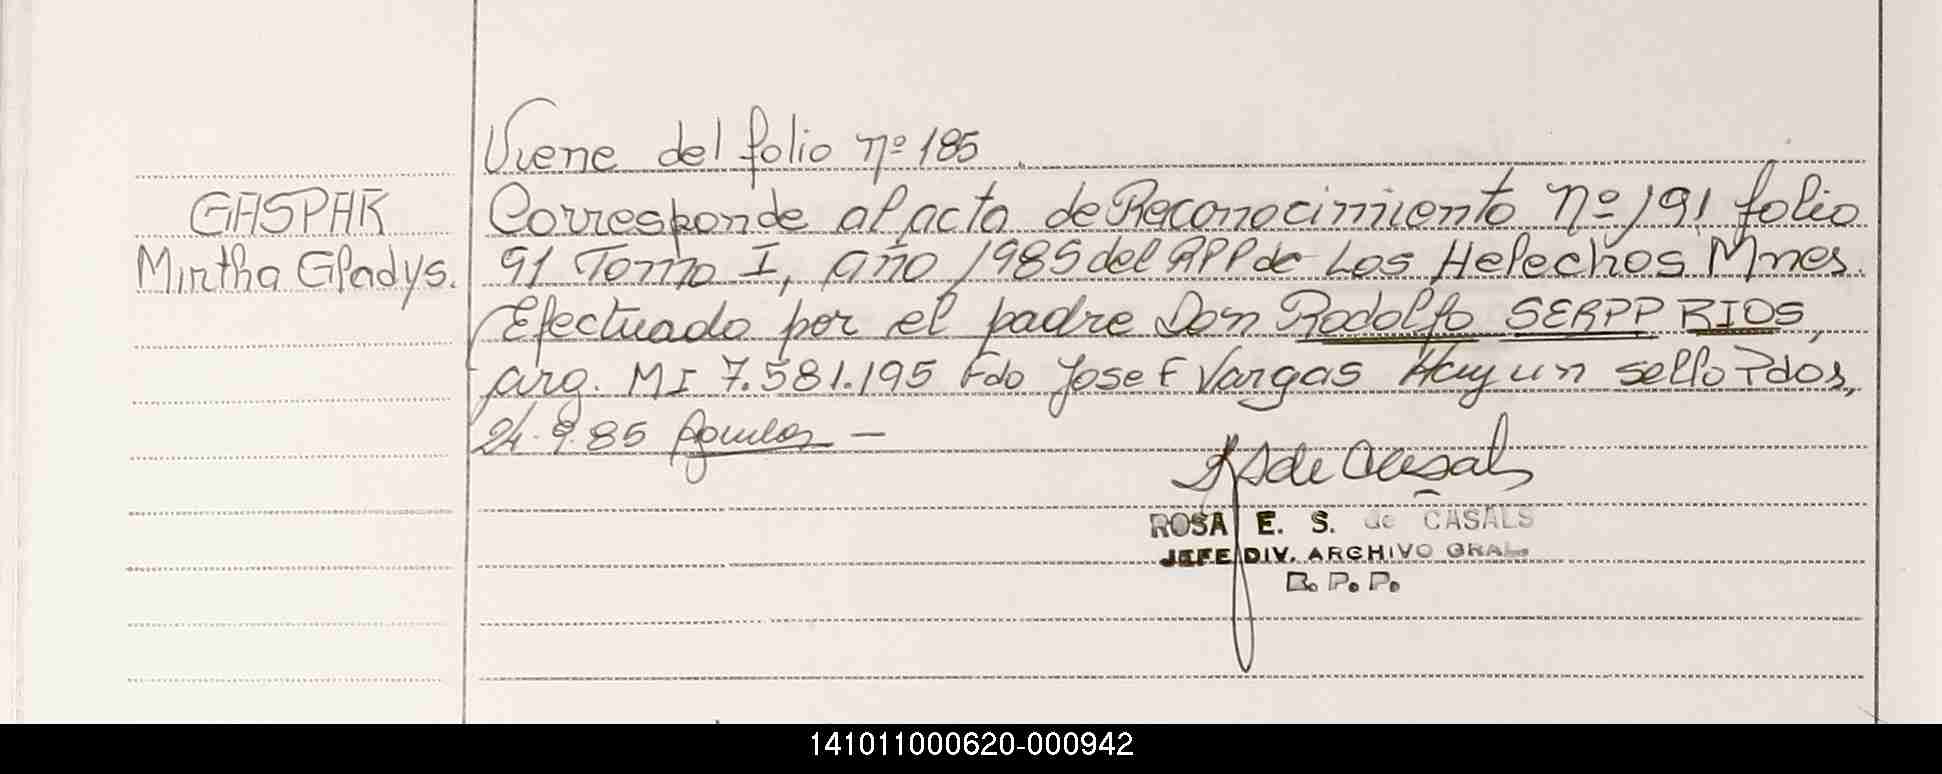 Viene del folio nº 185
GASPAR
Mirtha Gladys.
Corresponde al acta de Reconocimiento nº 191 folio
91 Tomo I, año 1985 del RPP de Los Helechos Mnes.
Efectuado por el padre Don Rodolfo SERPP RIOS,
arg. MI 7.581.195 Fdo Jose F Vargas Hay un sello Pdos,
24.9.85 Aguilar —
R S de Casals
ROSA E. S. de CASALS
JEFE DIV. ARCHIVO GRAL.
R. P. P.
141011000620-000942